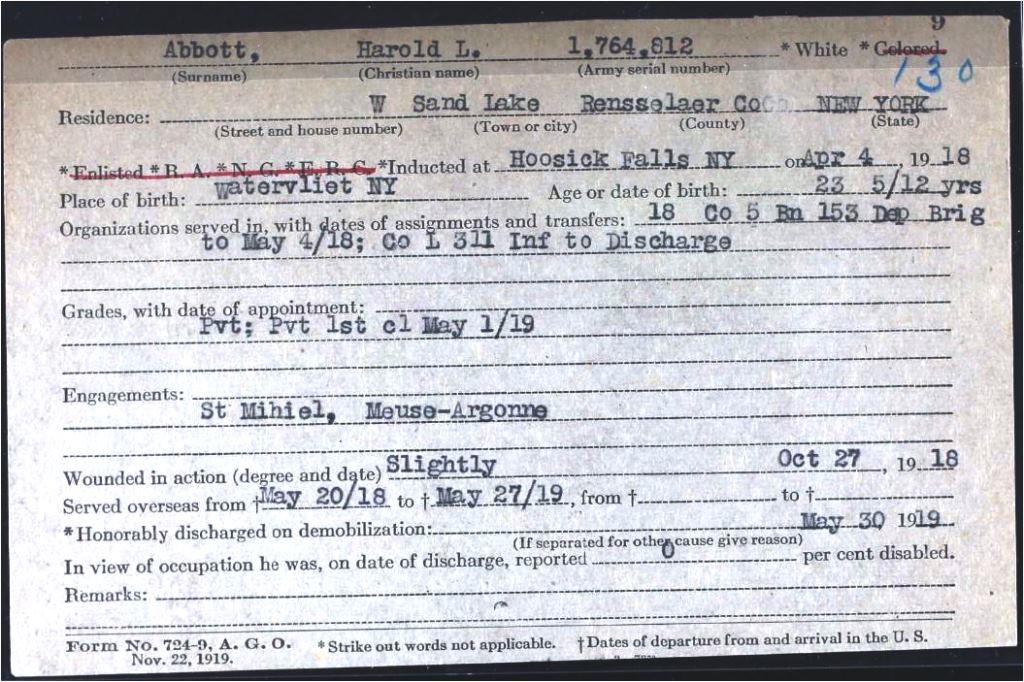 9
Abbott, Harold L. 1,764,812 * White * Colored.
(Surname) (Christian name) (Army serial number)
130
Residence: W Sand Lake Rensselaer Co NEW YORK
(Street and house number) (Town or city) (County) (State)
*Enlisted *R. A. *N. G. *E. R. C. *Inducted at Hoosick Falls NY on Apr 4, 1918
Place of birth: Watervliet NY Age or date of birth: 23 5/12 yrs
Organizations served in, with dates of assignments and transfers: 18 Co 5 Bn 153 Dep Brig
to May 4/18; Co L 311 Inf to Discharge
Grades, with date of appointment:
Pvt; Pvt 1st cl May 1/19
Engagements:
St Mihiel, Meuse-Argonne
Wounded in action (degree and date) Slightly Oct 27, 1918
Served overseas from † May 20/18 to † May 27/19, from † to †
*Honorably discharged on demobilization: May 30 1919
(If separated for other cause give reason)
In view of occupation he was, on date of discharge, reported 0 per cent disabled.
Remarks:
Form No. 724-9, A. G. O. *Strike out words not applicable. †Dates of departure from and arrival in the U. S.
Nov. 22, 1919.